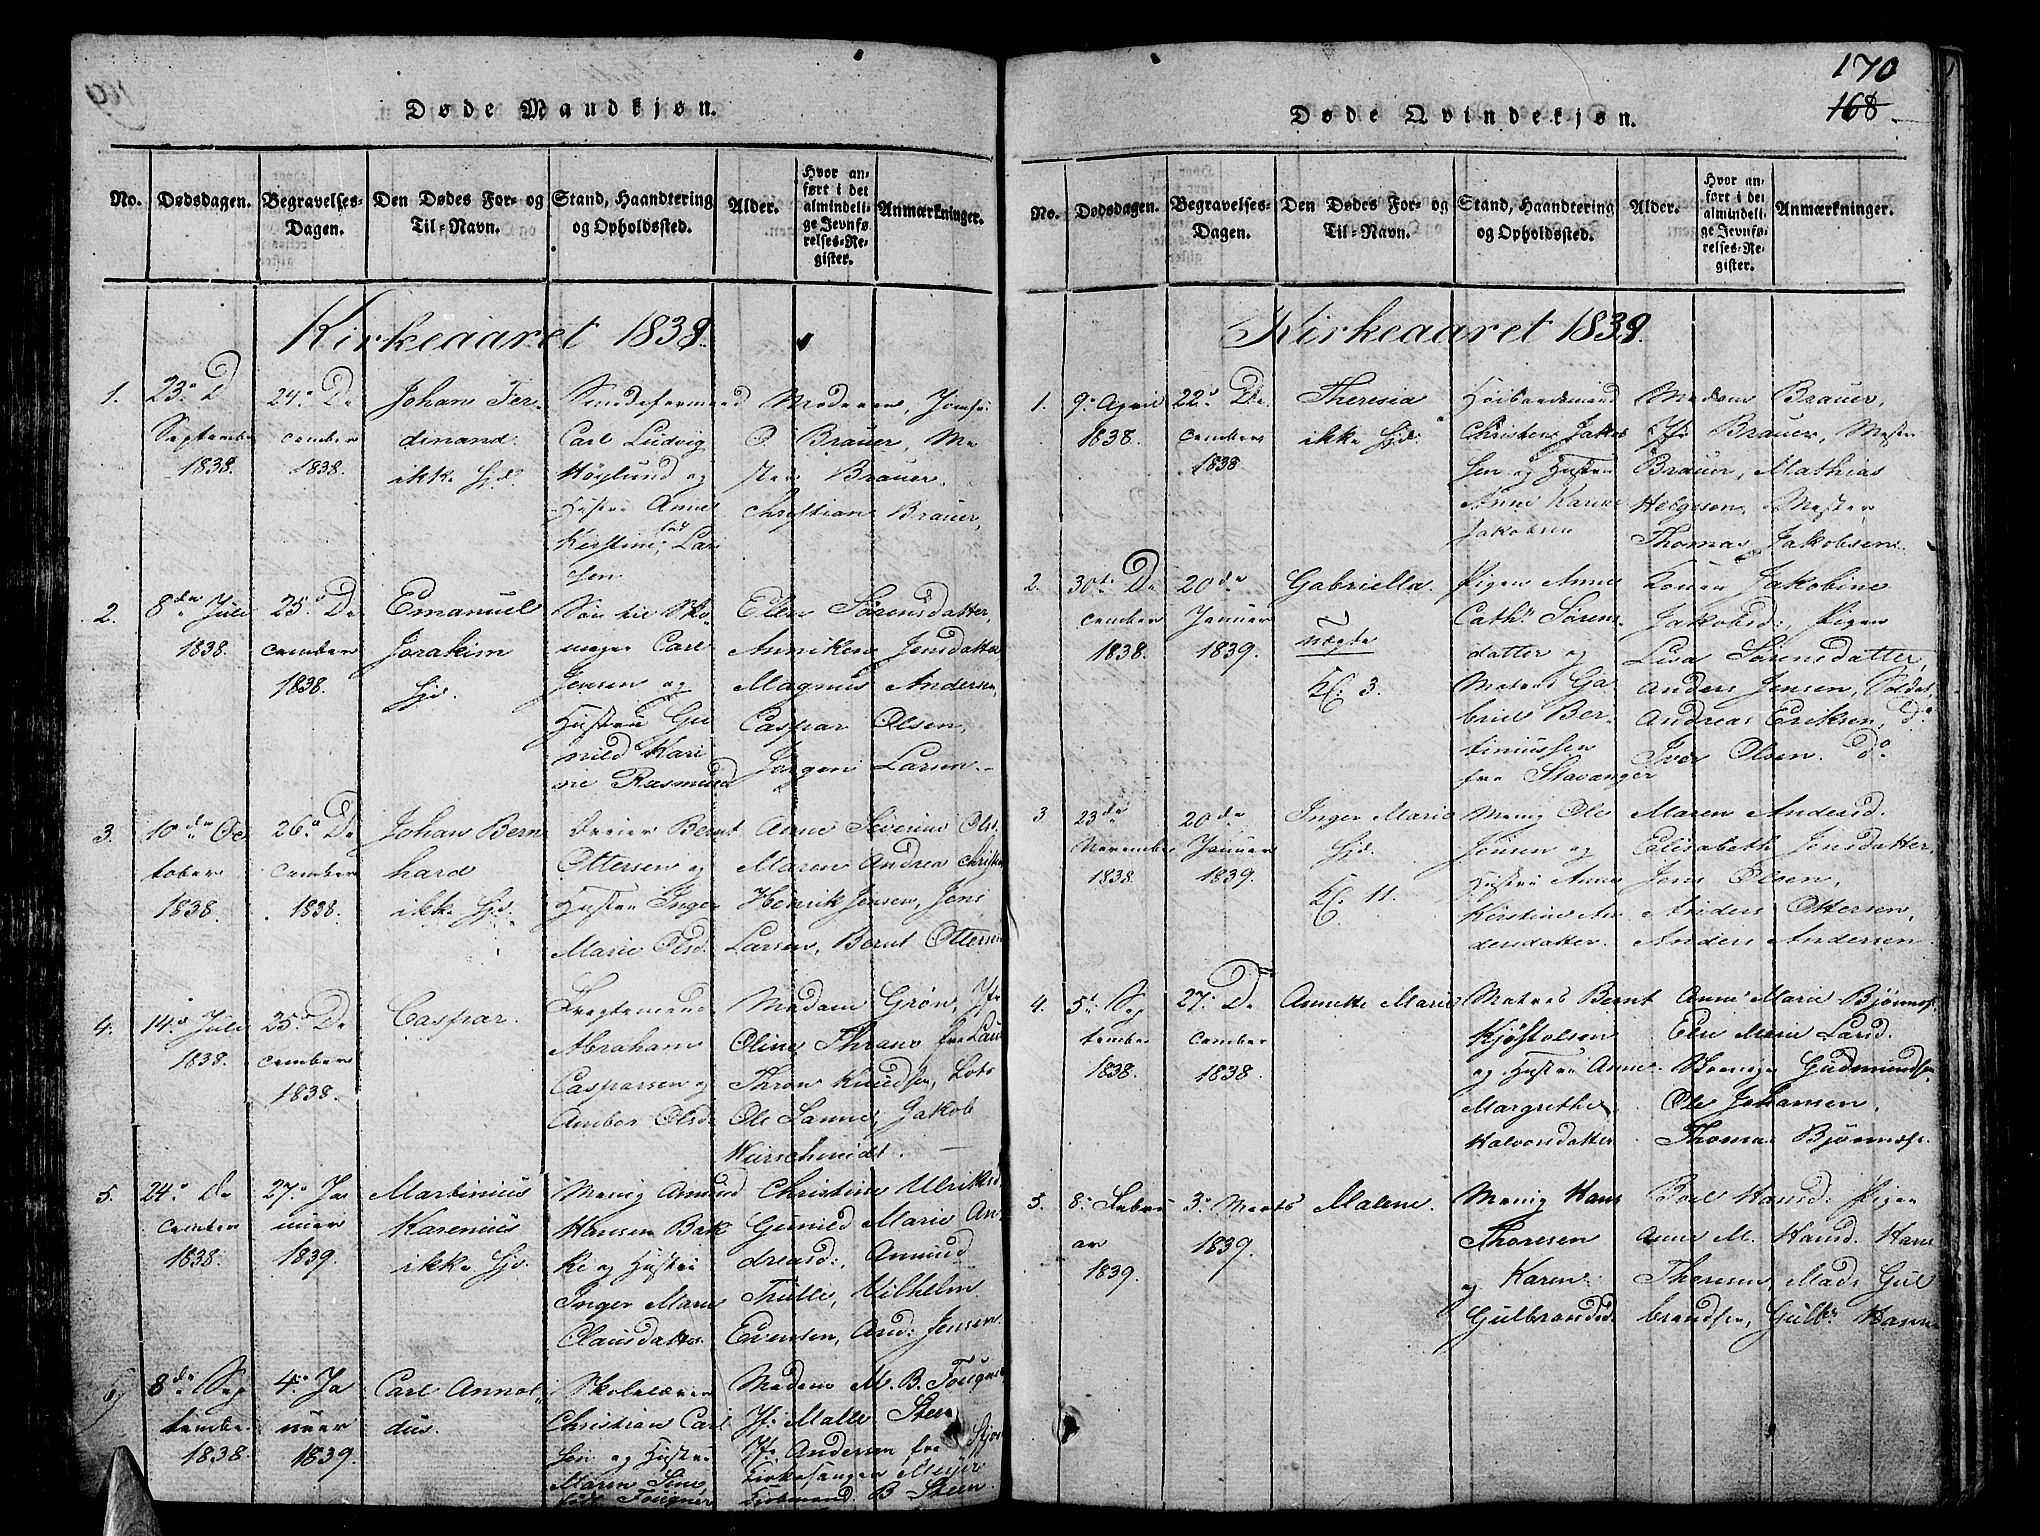 Døde Mandkjøn.
No.
Dødsdagen.
Begravelses-
Dagen.
Den Dødes For- og
Til-Navn.
Stand, Haandtering
og Opholdssted.
Alder.
Hvor an-
ført i det
almindeli-
ge Jevnfø-
relses-Re-
gister.
Anmærkninger.
Kirkeaaret 1839.
1.
23. D
September
1838.
24. De
cember
1838.
Johan Fer-
dinand.
ikke hjd.
Carl Ludvig
Höglund og
Hustru Anne
Kirstine Lar
sen
Moderen, Jomfr:
O. Brauer, Me
ster Brauer.
Christian Brauer,
2.
8de Juli
1838.
25. De
cember
1838.
Emanuel
Jorakim
hjd.
Søn til Sko-
mager Carl
Jensen og
Hustru Gu
nild Kari
ne Rasmusd
Elen Sørensdatter,
Anniken Jensdatter
Magnus Andersen,
Caspar Olsen,
Jørgen Larsen.
3.
10de Oc
tober
1838.
26. De
cember
1838.
Johan Bern
hard
ikke hjd.
Dreier Bernt
Ottersen og
Hustru Inger
Marie Olsd.
Anne Severine Olsd.
Maren Andrea Christ
Henrik Jensen, Jens
Larsen, Bernt Ottersen
4.
14. Juli
1838.
25. De
cember
1838.
Caspar.
Abraham
Casparsen og
Ambor Olsd.
Madam Grøn, Jfr
Oline Thrane fra Laur
Thron Knudsen, Lods
Ole Sanne, Jakob
Kurschmidt.
5.
24. De
cember
1838.
27. Ja
nuar
1839.
Martinius
Karenius
ikke hjd.
Menig Amund
Hansen Bak
ke og Hustru
Inger Marie
Clausdatter.
Christine Ulriksd
Gunild Marie An-
dreasd:, Amund
Trulle, Vilhelm
Evensen, And: Jensen
6.
8de Sep
tember
1838.
4. Ja
nuar
1839.
Carl Annol
dus.
Skolelærer
Christian Carl
sen og Hustru
Maren Sine
Fougner
Madam M. B. Fougner
Jf: Malle Steen
Jfr Andersen fra
Kirkesanger Meyer
Kjøbmand B Steen
170
168
Døde Qvindekjøn.
No.
Dødsdagen.
Begravelses-
Dagen.
Den Dødes For- og
Til-Navn.
Stand, Haandtering
og Opholdssted.
Alder.
Hvor an-
ført i det
almindeli-
ge Jevnfø-
relses-Re-
gister.
Anmærkninger.
Kirkeaaret 1839.
1.
9. April
1838.
22. De
cember
1838
Theresia
ikke hjd.
Christen Jakob
sen og Hustru
Anne Karine
Jakobsen
Madam Brauer,
Jfr Brauer, Mester
Brauer, Mathias
Helgesen, Mester
Thomas Jakobsen
2.
30te De
cember
1838.
20de
Januar
1839.
Gabriella.
uægte
Kl. 3.
Pigen Anne
Cath: Sørens
datter og
Matros Ga
briel Ber-
tiniussen
fra Stavanger
Konen Jakobine
Jakobsd:, Pigen
Lisa Sørensdatter,
Anders Jensen, Soldat,
Andreas Eriksen, do
Iver Olsen. do
3
23de
November
1838.
20de
Januar
1839.
Inger Marie
hjd.
Kl. 11.
Menig Ole
Jensen og
Hustru Anne
Kirstine An
dersdatter.
Maren Andersd.
Elisabeth Jensdatter.
Jens Olsen,
Anders Ottersen,
Anders Andersen.
4.
5. Sep
tember
1838.
27. De
cember
1838.
Annette Marie
Matros Bernt
Kjøstolsen
og Hustru Anne
Margrethe
Halvorsdatter
Anne Marie Bjønnes.
Else Marie Larsd.
Gudmundsen
Ole Johansen,
Thomas Bjønnes.
5.
8. Febru
ar
1839.
3. Marts
1839.
Malene.
Menig Hans
Thoresen
og Karen
Gulbrandsd.
Boel Hansd: Pigen
Anne M. Hansd. Hans
Thoresen, Mads Gul
brandsen, Gulb: Hansen